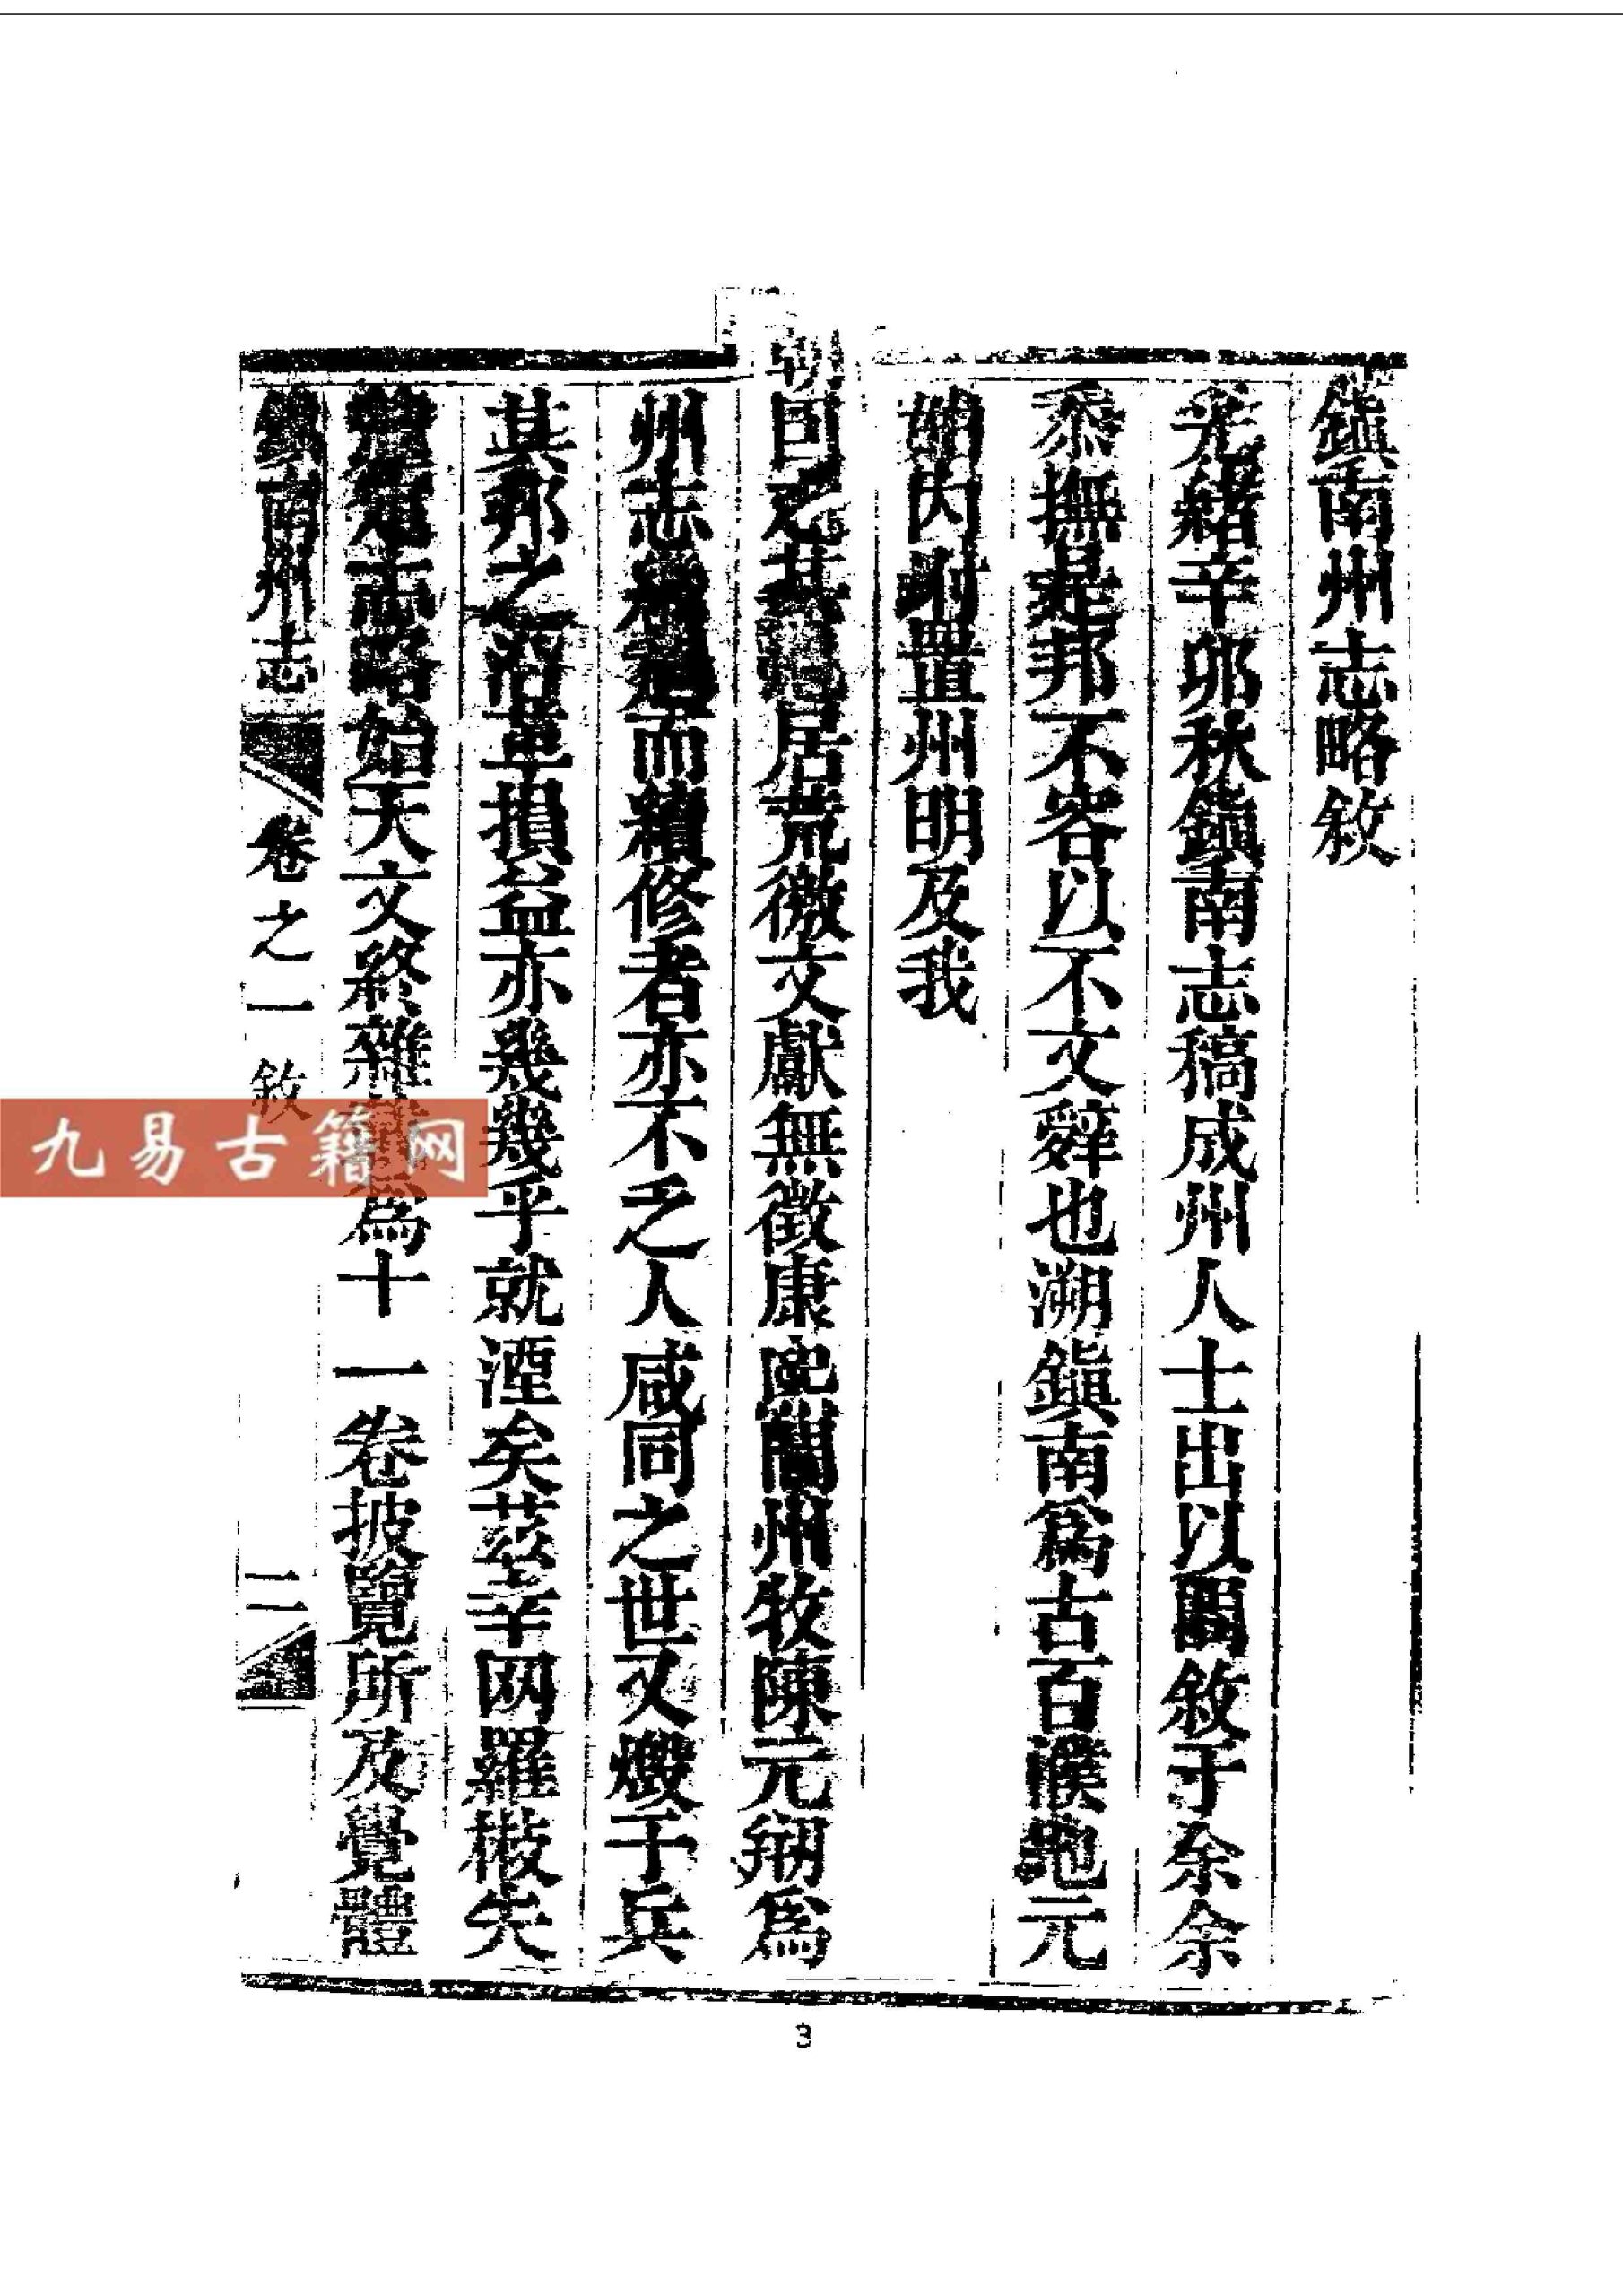 鎮南州志略敘
光緒辛卯秋鎮南志稿成州人士出以囑敘于余余
忝撫是邦不容以不文辭也溯鎮南爲古百濮地元
始內附置州明及我
朝因之其地居荒徼文獻無徵康熙間州牧陳元剏爲
州志而續修者亦不乏人咸同之世又燬于兵
其邦之沿革損益亦幾幾乎就湮矣茲幸网羅散失
志略始天文終雜爲十一卷披覽所及覺體
鎮南州志 卷之一 敘 二
九易古籍网
3